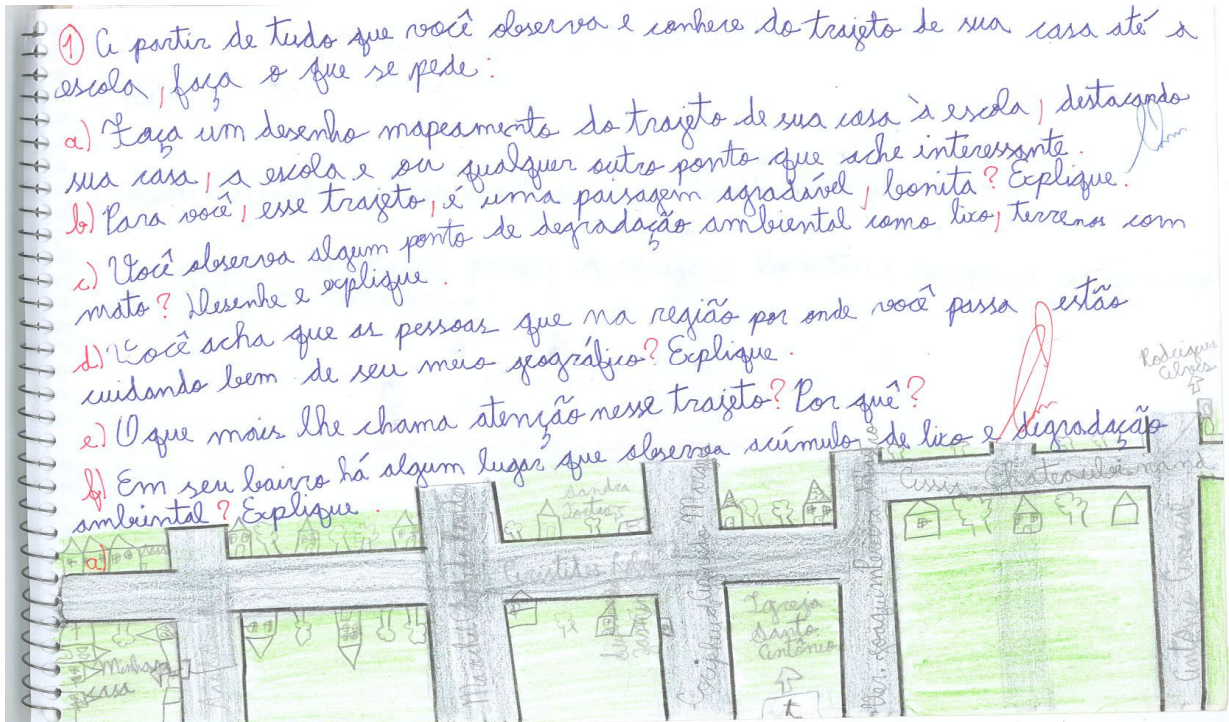 ① A partir de tudo que você observa e conhece do trajeto de sua casa até a
escola, faça o que se pede:
a) Faça um desenho mapeamento do trajeto de sua casa à escola, destacando
sua casa, a escola e ou qualquer outro ponto que ache interessante.
b) Para você, esse trajeto, é uma paisagem agradável, bonita? Explique.
c) Você observa algum ponto de degradação ambiental como lixo, terrenos com
mato? Desenhe e explique.
d) Você acha que as pessoas que na região por onde você passa estão
cuidando bem de seu meio geográfico? Explique.
e) O que mais lhe chama atenção nesse trajeto? Por quê?
f) Em seu bairro há algum lugar que observa acúmulo de lixo e degradação
ambiental? Explique.
a)
Rodrigues
Alves
Assis Chateaubriand
Aristites Lobo
Igreja
Santo
Antônio
Minha
casa